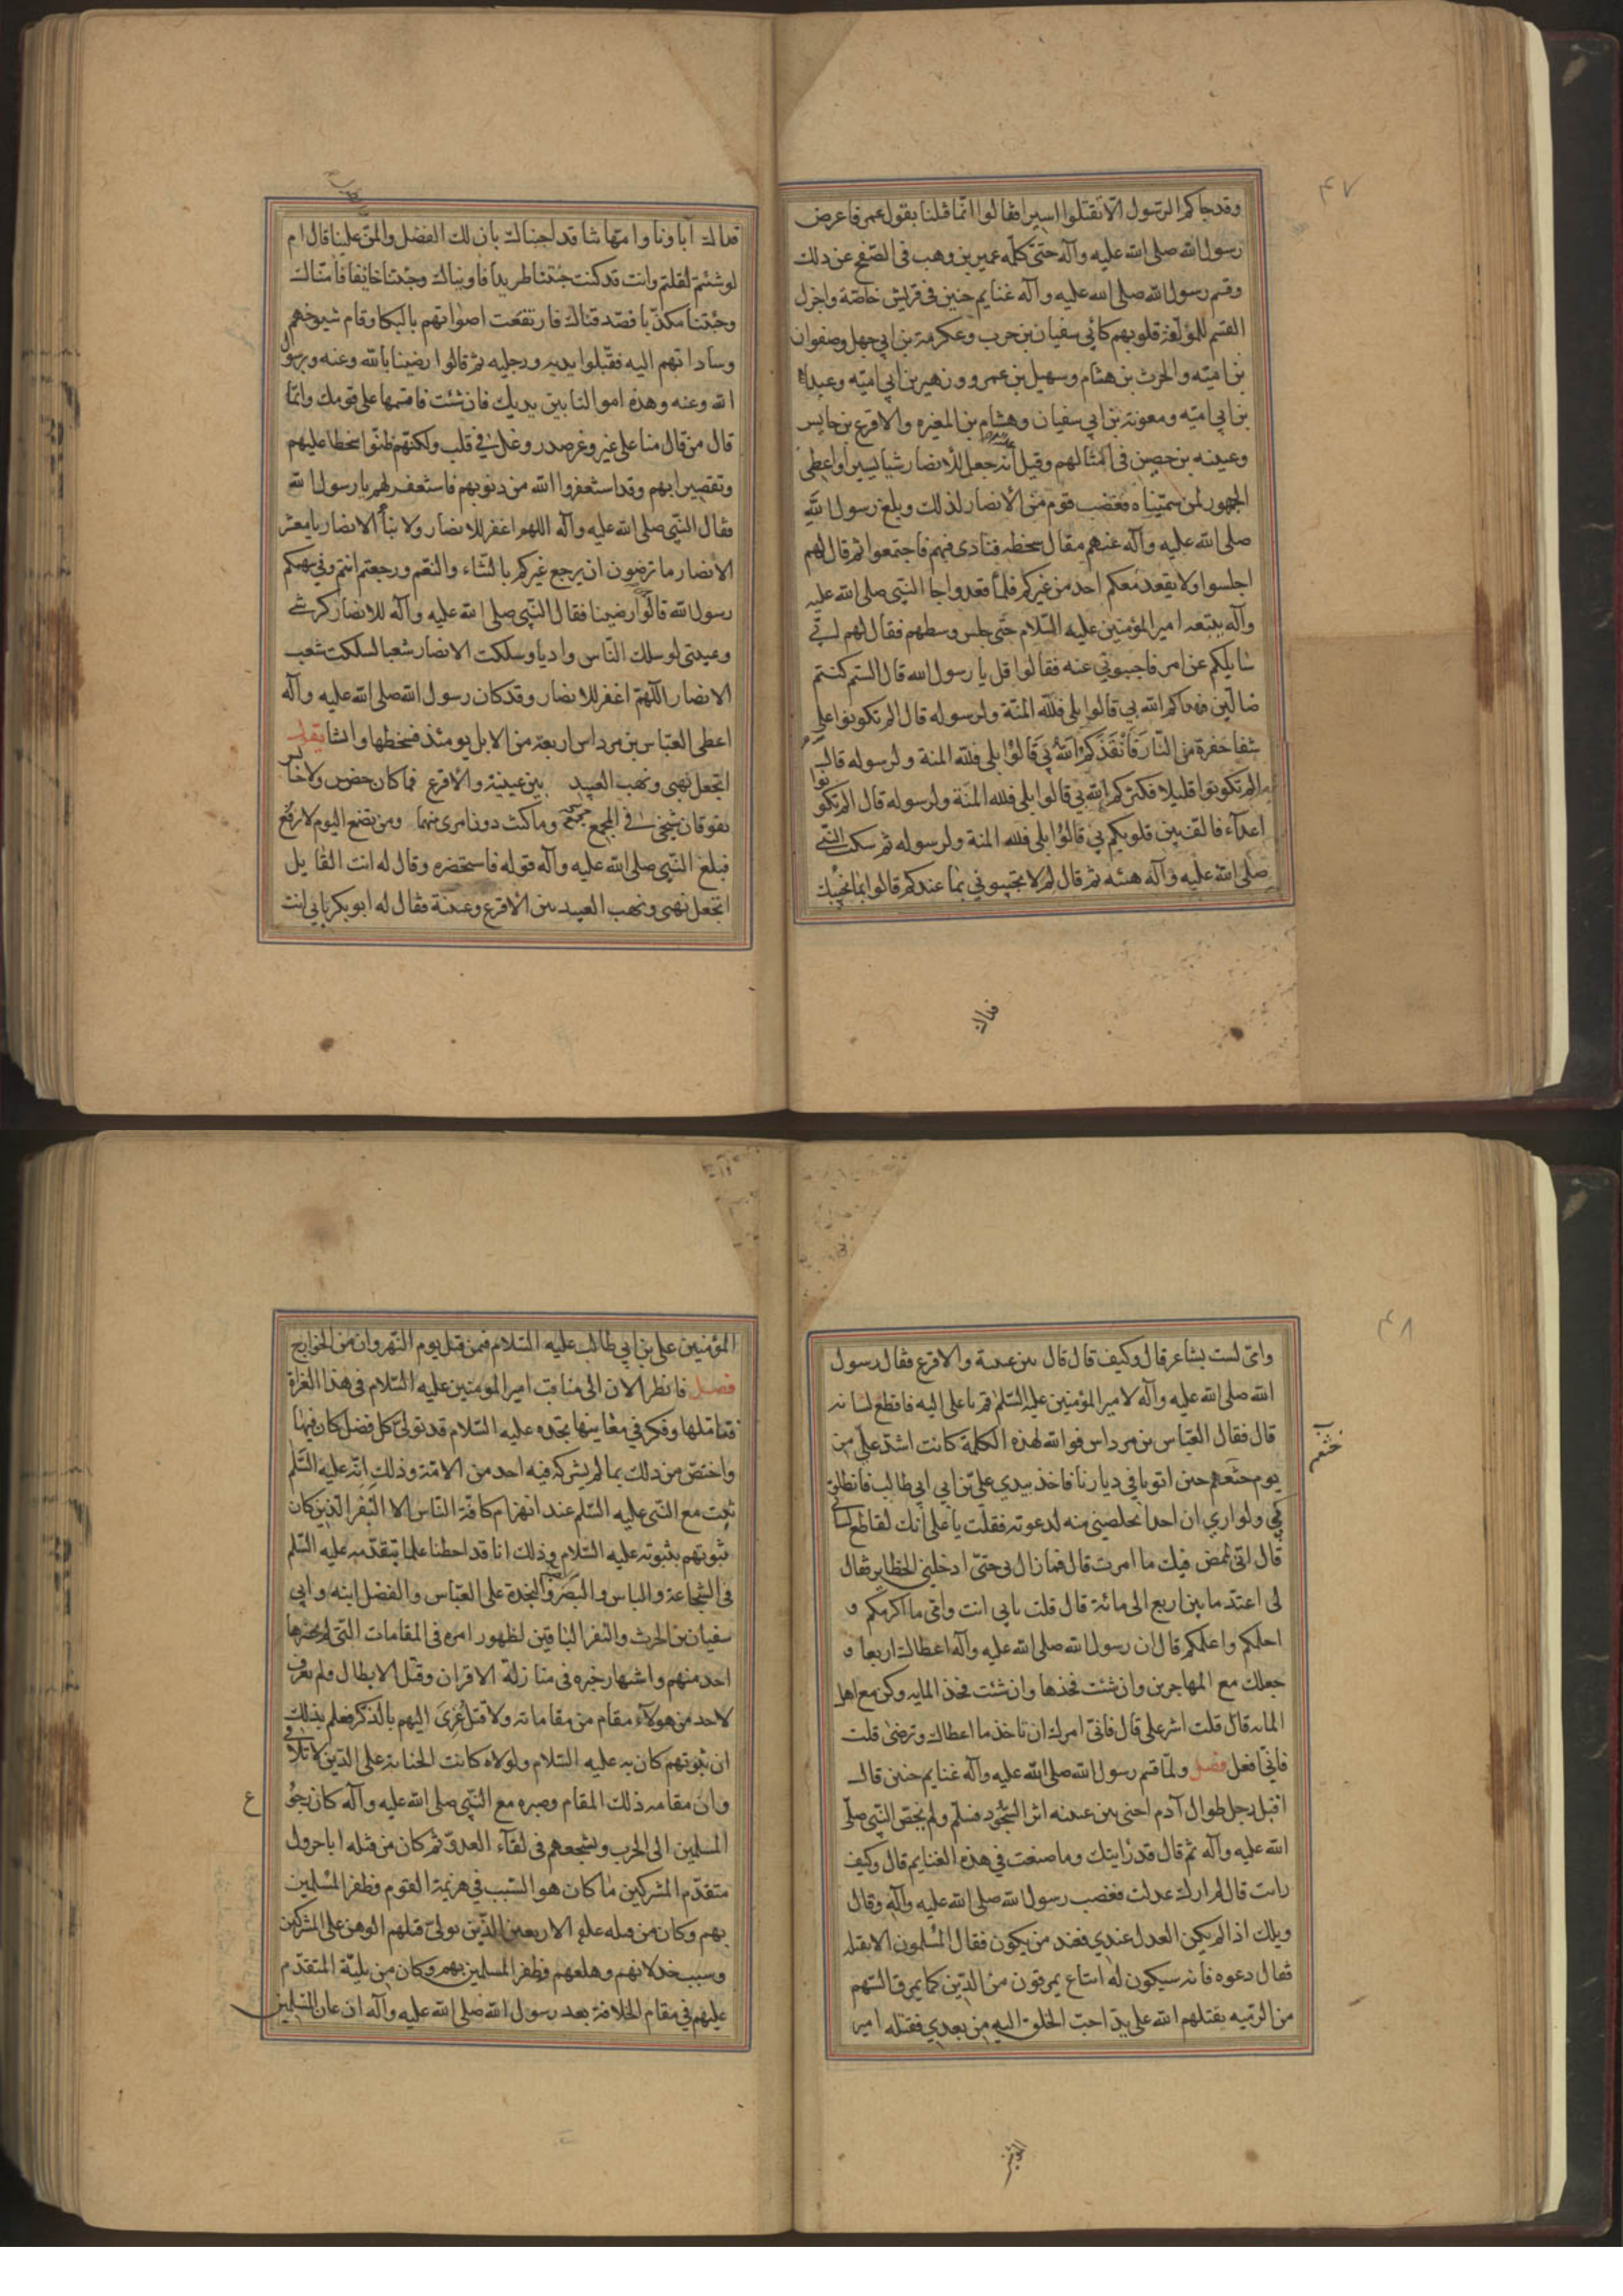 ٤٧
وقد جاكم الرسول الا تقتلوا اسيرا فقالوا انما قلنا بقول عمر فاعرض
رسول الله صلى الله عليه وآله حتى كلمه عمير بن وهب في الصفح عن ذلك
وقسم رسول الله صلى الله عليه وآله غنايم حنين في قريش خاصة واجزل
القسم للمؤلفة قلوبهم كابي سفيان بن حرب وعكرمة بن ابي جهل وصفوان
بن اميه والحرث بن هشام وسهيل بن عمرو وزهير بن ابي اميه وعبدالله
بن ابي اميه ومعوية بن ابي سفيان وهشام بن المغيره والاقرع بن حابس
وعيينه بن حصين في امثالهم وقيل انه جعل للانصار شيا يسيرا واعطى
الجمهور لمن سميناه فغضب قوم من الأنصار لذلك وبلغ رسول الله
صلى الله عليه وآله عنهم مقال سخطه فنادى فيهم فاجتمعوا ثم قال لهم
اجلسوا ولا يقعد معكم احد من غيركم فلما قعدوا جا النبي صلى الله عليه
وآله يتبعه امير المؤمنين عليه السلام حتى جلس وسطهم فقال لهم اني
سايلكم عن امر فاجيبوني عنه فقالوا قل يا رسول الله قال الستم كنتم
ضالين فهداكم الله بي قالوا بلى فلله المنة ولرسوله قال الم تكونوا على
شفا حفرة من النار فانقذكم الله بي قالوا بلى فلله المنة ولرسوله قال
الم تكونوا قليلا فكثركم الله بي قالوا بلى فلله المنة ولرسوله قال الم تكونوا
اعدآء فالف بين قلوبكم بي قالوا بلى فلله المنة ولرسوله ثم سكت النبي
صلى الله عليه وآله هنيه ثم قال لم لا تجيبوني بما عندكم قالوا بما نجيبك
فداك
فداك آباونا وامهاتنا قد اجبناك بان لك الفضل والمن علينا قال ام
لو شئتم لقلتم وانت قد كنت جئتنا طريدا فاويناك وجئتنا خايفا فامناك
وجئتنا مكذبا فصدقناك فارتفعت اصواتهم بالبكا وقام شيوخهم
وساداتهم اليه فقبلوا يديه ورجليه ثم قالوا رضينا بالله وعنه وبرسول
الله وعنه وهذه اموالنا بين يديك فان شئت فاقسمها على قومك وانما
قال من قال منا على غير وغر صدر وغل في قلب ولكنهم ظنوا سخطا عليهم
وتقصيرا بهم وقد استغفروا الله من ذنوبهم فاستغفر لهم يا رسول الله
فقال النبي صلى الله عليه وآله اللهم اغفر للانصار ولابنآ الانصار يا معشر
الانصار ما ترضون ان يرجع غيركم بالشاء والنعم ورجعتم انتم وفي سهمكم
رسول الله قالوا رضينا فقال النبي صلى الله عليه وآله للانصار كرشي
وعيبتي لو سلك الناس واديا وسلكت الانصار شعبا لسلكت شعب
الانصار اللهم اغفر للانصار وقد كان رسول الله صلى الله عليه وآله
اعطى العباس بن مرداس اربعة من الابل يومئذ فسخطها وانشا يقول
اتجعل نهبي ونهب العبيد بين عيينة والاقرع فما كان حصن ولا حابس
يفوقان شيخي في المجمع وما كنت دون امرئ منهما ومن تضع اليوم لا يرفع
فبلغ النبي صلى الله عليه وآله قوله فاستحضره وقال له انت القايل
اتجعل نهبي ونهب العبيد بين الاقرع وعيينة فقال له ابو بكر بابي انت
٤٨
وامي لست بشاعر قال وكيف قال قال بين عيينة والاقرع فقال رسول
الله صلى الله عليه وآله لامير المؤمنين عليه السلم قم يا على اليه فاقطع لسانه
قال فقال العباس بن مرداس فوالله لهذه الكلمة كانت اشد علي من
يوم خثعم حين اتونا في ديارنا فاخذ بيدي علي بن ابي طالب فانطلق
بي ولو ارى ان احدا يخلصني منه لدعوته فقلت يا علي انك لقاطع لساني
قال اني ممض فيك ما امرت قال فما زال بي حتى ادخلني الحظاير فقال
لي اعتد ما بين اربع الى مائة قال قلت بابي انت وامي ما اكرمكم و
احلمكم واعلمكم قال ان رسول الله صلى الله عليه وآله اعطاك اربعا و
جعلك مع المهاجرين وان شئت فخذها وان شئت فخذ المايه وكن مع اهل
المايه قال قلت اشر علي قال فاني امرك ان تاخذ ما اعطاك وترضى قلت
فاني افعل فصل ولما قسم رسول الله صلى الله عليه وآله غنايم حنين قال
اقبل رجل طوال آدم احنى بين عينيه اثر السجود فسلم ولم يخص النبي صلى
الله عليه وآله ثم قال قد رايتك وما صنعت في هذه الغنايم قال وكيف
رايت قال لم ارك عدلت فغضب رسول الله صلى الله عليه وآله وقال
ويلك اذا لم يكن العدل عندي فعند من يكون فقال المسلمون الا نقتله
فقال دعوه فانه سيكون له اتباع يمرقون من الدين كما يمرق السهم
من الرميه يقتلهم الله على يد احب الخلق اليه من بعدي فقتله امير
خثعم
المؤمنين
المؤمنين علي بن ابي طالب عليه السلام فيمن قتل يوم النهروان من الخوارج
فصل فانظر الان الى مناقب امير المومنين عليه السلام في هذا الغزاة
فتاملها وفكر في معانيها تجده عليه السلام قد تولى كل فضل كان فيها
واختص من ذلك بما لم يشركه فيه احد من الامة وذلك انه عليه السلم
ثبت مع النبي عليه السلم عند انهزام كافة الناس الا النفر الذين كان
ثبوتهم بثبوته عليه السلام وذلك انا قد احطنا علما بتقدمه عليه السلم
في الشجاعة والباس والصبر والنجدة على العباس والفضل ابنه وابي
سفيان بن الحرث والنفر الباقين لظهور امره في المقامات التي لم يحضرها
احد منهم واشتهار خبره في منازلة الاقران وقتل الابطال ولم يعرف
لاحد من هولآء مقام من مقاماته ولا قتل عزي اليهم بالذكر فعلم بذلك
ان ثبوتهم كان به عليه السلام ولولاه كانت الجنايه على الدين لا تتلافى
وان مقامه ذلك المقام وصبره مع النبي صلى الله عليه وآله كان رجوع
المسلمين الى الحرب وتشجعهم في لقآء العدو ثم كان من قتله ابا جرول
متقدم المشركين ما كان هو السبب في هزيمة القوم وظفر المسلمين
بهم وكان من قتله عليه الاربعين الذين تولى قتلهم الوهن على المشركين
وسبب خذلانهم وهلعهم وظفر المسلمين بهم وكان من بليه المتقدم
عليهم في مقام الخلافة بعد رسول الله صلى الله عليه وآله ان عان المسلمين